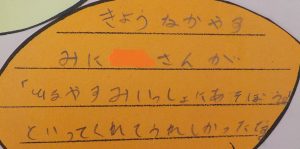 きょうなかやす
みに さんが
「ひるやすみいっしょにあそぼうよ
といってくれてうれしかったな